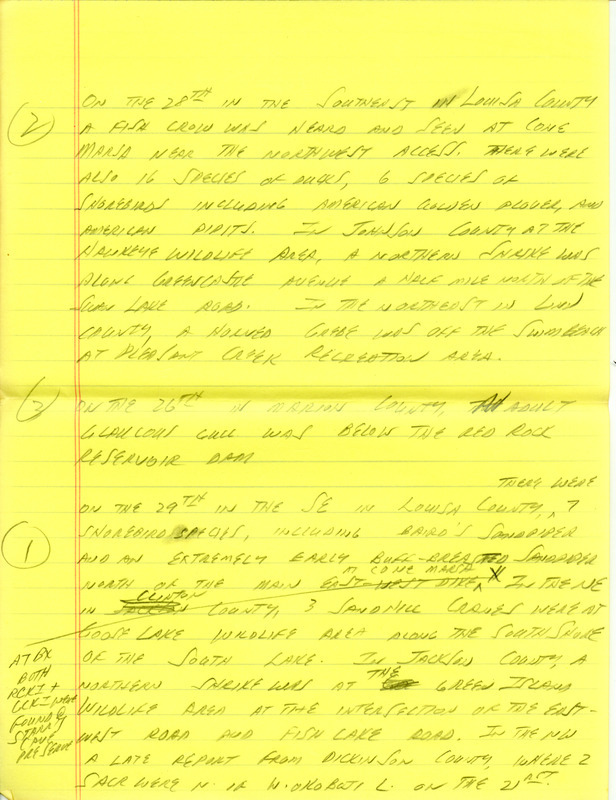 (2)
ON THE 28TH IN THE SOUTHEAST IN LOUISA COUNTY
A FISH CROW WAS HEARD AND SEEN AT CONE
MARSH NEAR THE NORTHWEST ACCESS. THERE WERE
ALSO 16 SPECIES OF DUCKS, 6 SPECIES OF
SHOREBIRDS INCLUDING AMERICAN GOLDEN PLOVER, AND
AMERICAN PIPITS. IN JOHNSON COUNTY AT THE
HAWKEYE WILDLIFE AREA, A NORTHERN SHRIKE WAS
ALONG GREENCASTLE AVENUE A HALF MILE NORTH OF THE
SWAN LAKE ROAD. IN THE NORTHEAST IN LINN
COUNTY, A HORNED GREBE WAS OFF THE SWIM BEACH
AT PLEASANT CREEK RECREATION AREA.
(3)
ON THE 26TH IN MARION COUNTY, AN ADULT
GLAUCOUS GULL WAS BELOW THE RED ROCK
RESERVOIR DAM
THERE WERE
ON THE 29TH IN THE SE IN LOUISA COUNTY, ^ 7
(1)
SHOREBIRD SPECIES, INCLUDING BAIRD'S SANDPIPER
AND AN EXTREMELY EARLY BUFF-BREASTED SANDPIPER
IN CONE MARSH
NORTH OF THE MAIN EAST-WEST DIKE, ^ X IN THE NE
CLINTON
IN JACKSON COUNTY, 3 SANDHILL CRANES WERE AT
GOOSE LAKE WILDLIFE AREA ALONG THE SOUTH SHORE
OF THE SOUTH LAKE. IN JACKSON COUNTY, A
THE
NORTHERN SHRIKE WAS AT GREEN ISLAND
WILDLIFE AREA AT THE INTERSECTION OF THE EAST-
WEST ROAD AND FISH LAKE ROAD. IN THE NW
A LATE REPORT FROM DICKINSON COUNTY, WHERE 2
SACR WERE N. OF W. OKOBOJI L. ON THE 21ST.
BOTH
RCKI +
WERE
FOUND @
STARRY
CAVE
PRESERVE